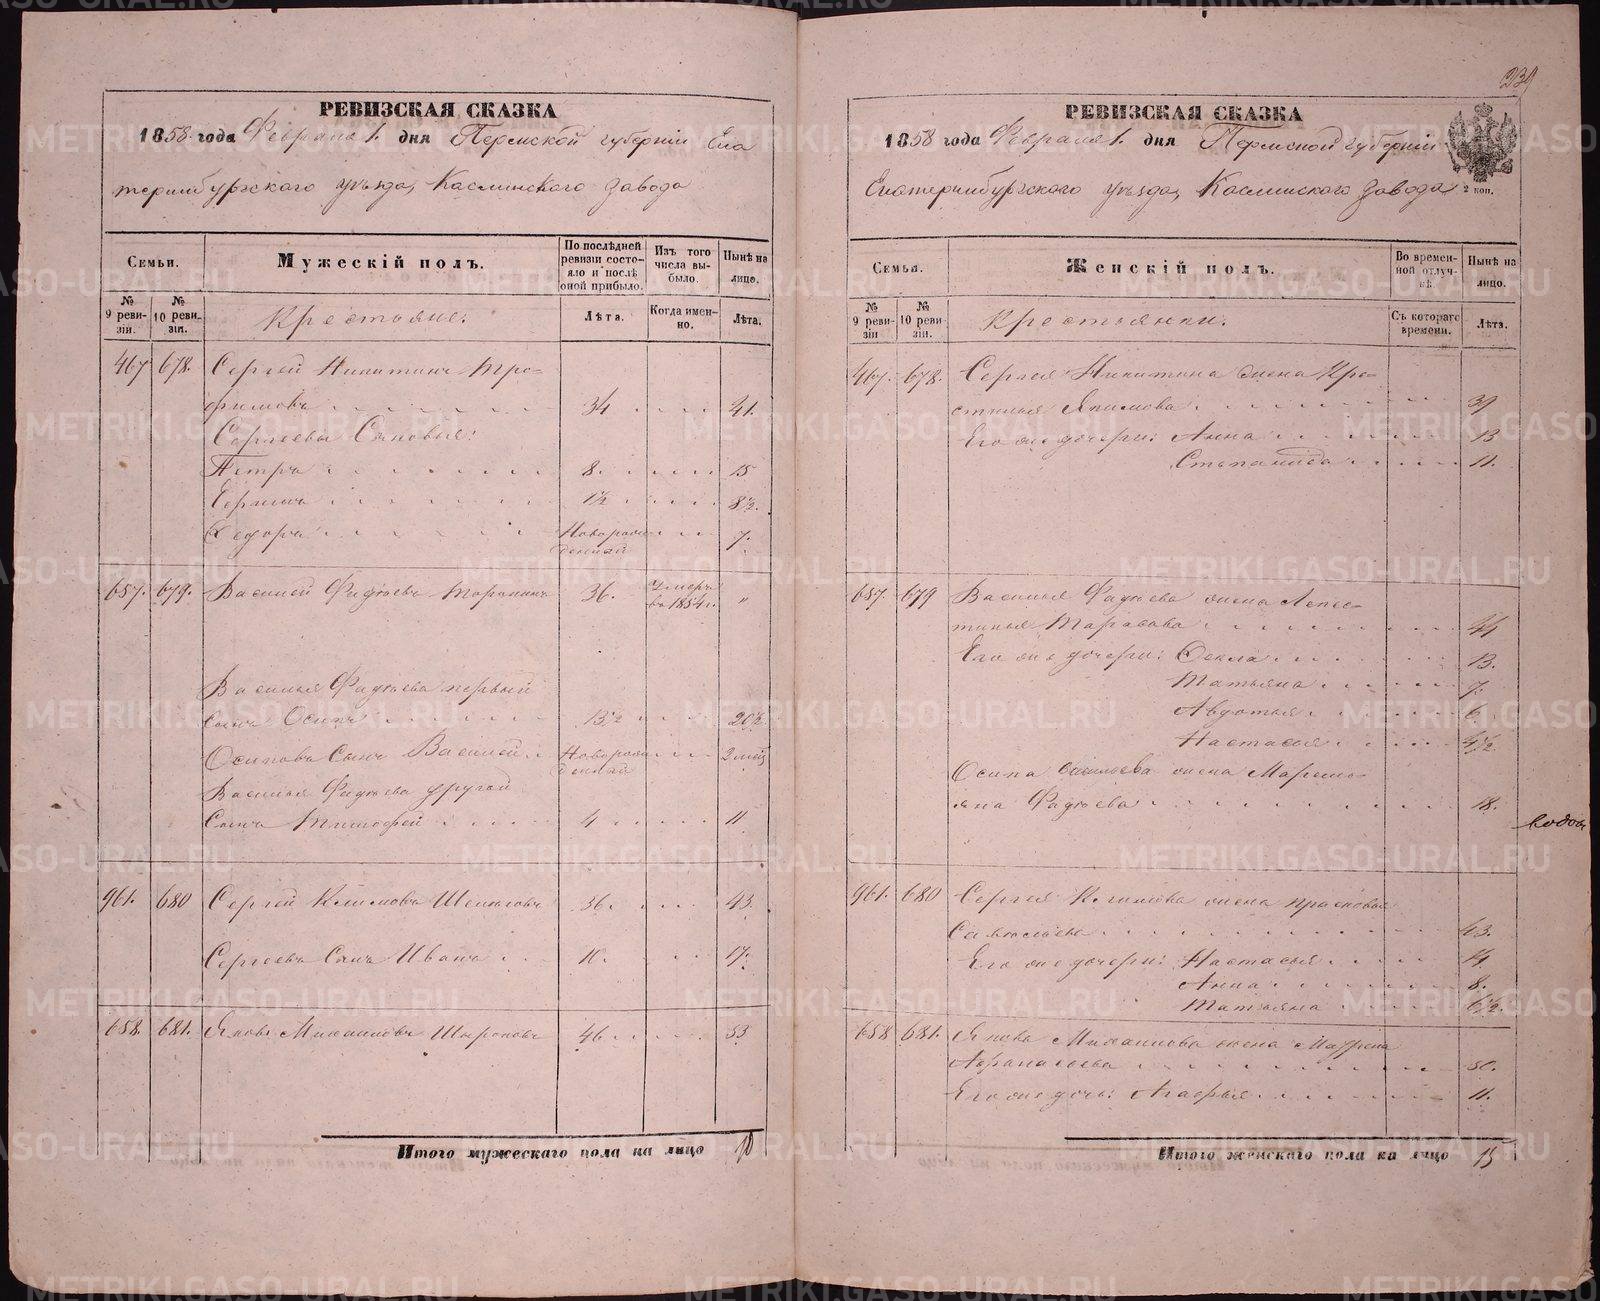 239
РЕВИЗСКАЯ СКАЗКА
1858 года Февраля 1. дня Пермской губерніи Ека
теринбургскаго уѣзда, Каслинскаго завода
Семьи.
Мужескій полъ.
По послѣдней ревизіи состояло и послѣ оной прибыло.
Изъ того числа выбыло.
Нынѣ на лицо.
№ 9 ревизіи.
№ 10 ревизіи.
Крестьяне.
Лѣта.
Когда именно.
Лѣта.
467 678. Сергей Никитинъ Тро-
фимовъ 34 41.
Сергеевы Сыновья:
Петръ 8. 15
1½ 8½.
Федоръ Новорож
денный 7.
657. 679. Василей Фадѣевъ 36. умеръ
въ 1854 г. "
Василья Фадѣева первый
сынъ Осипъ 13½ 20½
Осиповъ Сынъ Василей Новорож
денный 2 мѣс
Василья Фадѣева другой
Сынъ Тимофей 4 11
961. 680 Сергей Климовъ 36. 43.
Сергеевъ Сынъ Иванъ 10. 17.
658. 681. Яковъ Михайловъ 46 53
Итого мужескаго пола на лицо 10
РЕВИЗСКАЯ СКАЗКА
1858 года Февраля 1. дня Пермской губерніи
Екатеринбургскаго уѣзда, Каслинскаго завода
2 коп.
Семьи.
Женскій полъ.
Во временной отлучкѣ.
Нынѣ на лицо.
№ 9 ревизіи
№ 10 ревизіи.
Крестьянки.
Съ котораго времени.
Лѣта.
467. 678. Сергея Никитина жена Хре-
стинья Якимова 39
Его же дочери: Анна 13
Степанида 11.
657. 679 Василья Фадѣева жена
Тарасова 44
Его же дочери: Фекла 13.
Татьяна 7.
Авдотья 6
Настасья 4½
Осипа Васильева жена Маремь-
яна Фадѣева 18.
вдова
961. 680 Сергея Климова жена Прасковья
Савельева 43.
Его же дочери: Настасья 14
Анна 8.
Татьяна 6½.
658 681. Якова Михайлова жена Маврена
Афанасьева 50.
Его же дочь: Агафья 11.
Итого женскаго пола на лицо 15
METRIKI.GASO-URAL.RU